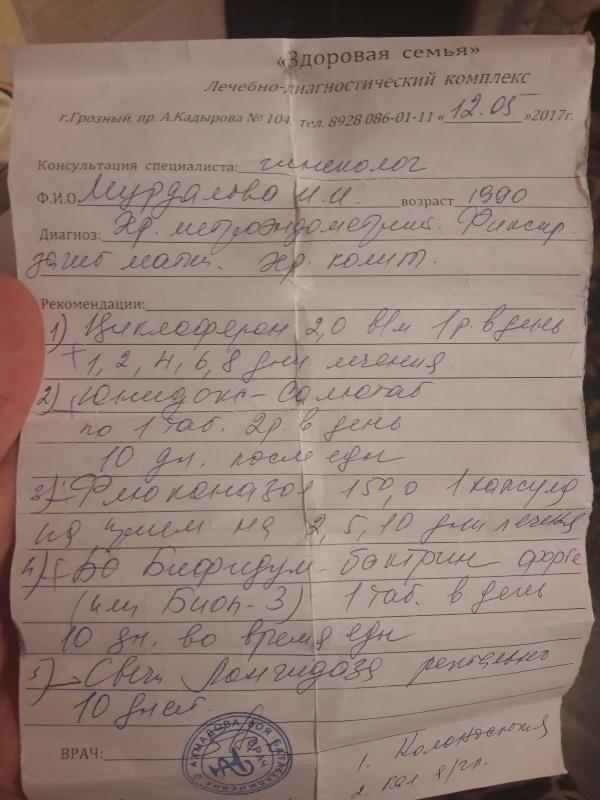 «Здоровая семья»
Лечебно-диагностический комплекс
г.Грозный, пр. А.Кадырова № 104, тел. 8928 086-01-11 «12.05»2017г.
Консультация специалиста: гинеколог
Ф.И.О Мурдалова И.И. возраст 1990
Диагноз: Хр. метроэндометрит. Фиксир.
загиб матки. Хр. колит.
Рекомендации:
1) Циклоферон 2,0 в/м 1 р. в день
1, 2, 4, 6, 8 дни лечения.
2) Юнидокс-Солютаб
по 1 таб. 2 р. в день
10 дн. после еды
3) Флюконазол 150,0 1 капсула
на прием на 2, 5, 10 дни лечения
4) Бифидум-бактрин форте
(или Бион-3) 1 таб. в день
10 дн. во время еды
5) Свечи Лонгидаза ректально
10 дней.
ВРАЧ:
АХМАДОВА ЗОЯ
ВРАЧ
1.
2. кал я/гл.